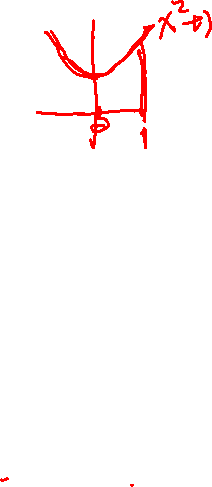 x²+1
0 1